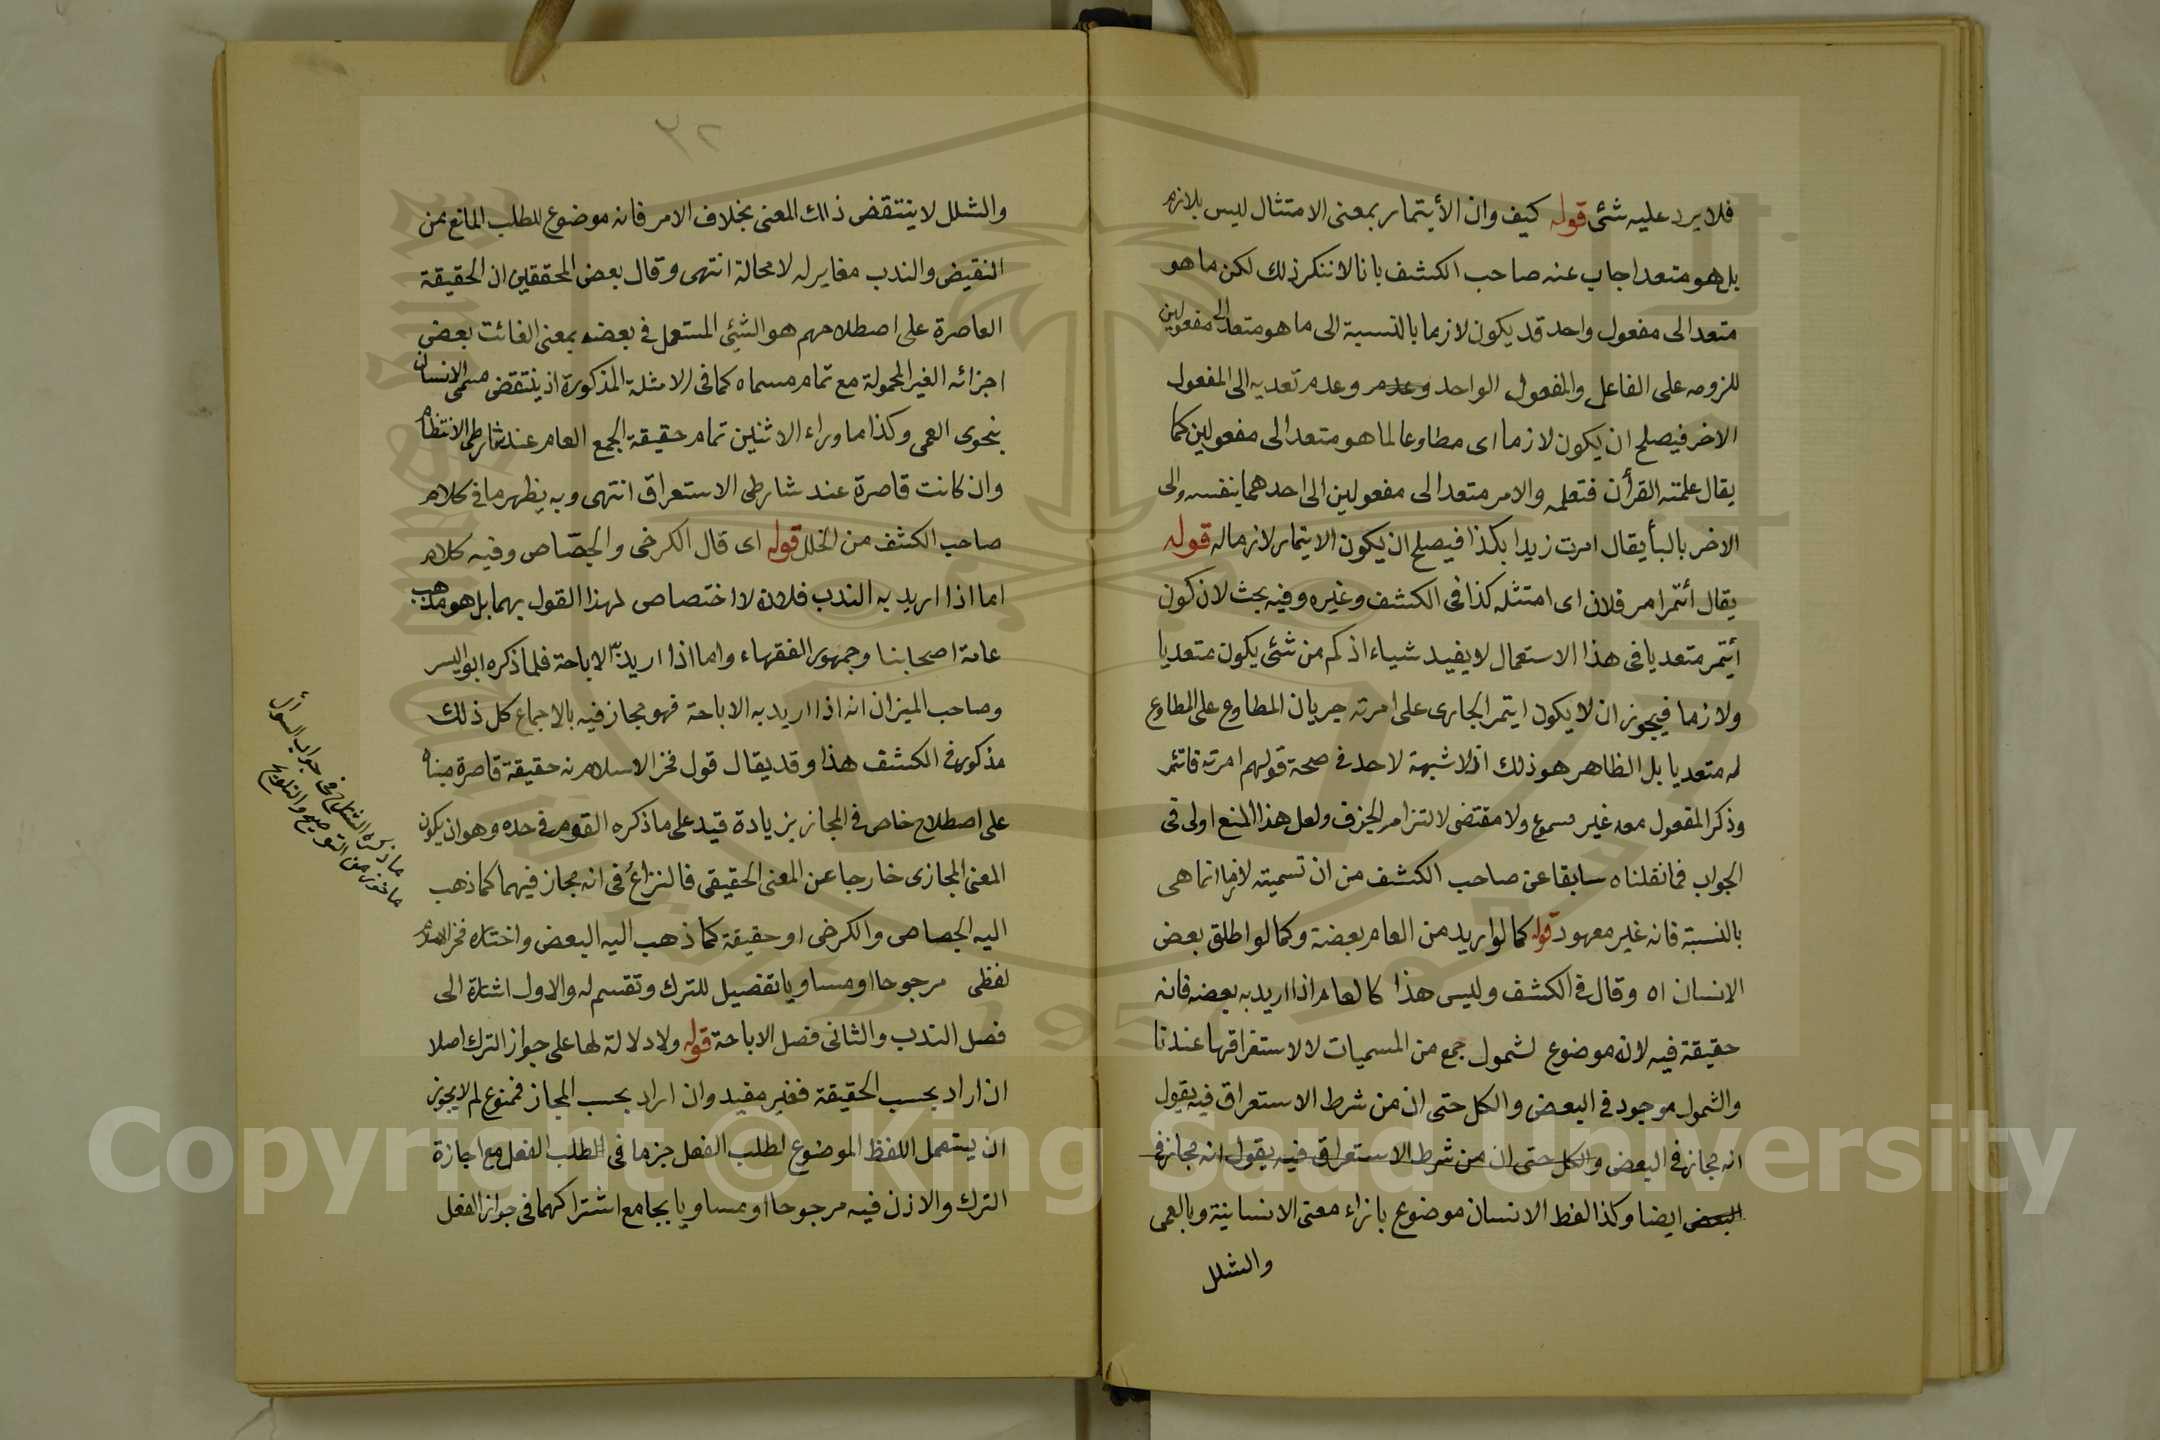 فلا يرد عليه شئ قوله كيف وان الأيتمار بمعنى الامتثال ليس بلازم
بل هو متعد اجاب عنه صاحب الكشف بانا لا ننكر ذلك لكن ما هو
متعد الى مفعول واحد قد يكون لازما بالنسبة الى ما هو متعد الى مفعولين
للزومه على الفاعل والمفعول الواحد وعدم وعدم تعديه الى المفعول
الاخر فيصلح ان يكون لازما اى مطاوعا لما هو متعد الى مفعولين كما
يقال علمته القرأن فتعلمه والامر متعد الى مفعولين الى احدهما بنفسه والى
الاخر بالبأ يقال امرت زيدا بكذا فيصلح ان يكون الايتمار لازما له قوله
يقال أئتمر امر فلان اى امتثله كذا فى الكشف وغيره وفيه بحث لان كون
أيتمر متعديا فى هذا الاستعمال لا يفيد شياء اذ كم من شئ يكون متعديا
ولازما فيجوز ان لا يكون ايتمر الجارى على امرته جريان المطاوع على المطاوع
له متعديا بل الظاهر هو ذلك اذ لا شبهة لاحد فى صحة قولهم امرته فائتمر
وذكر المفعول معه غير مسموع ولا مقتضى لالتزام الحذف ولعل هذا المنع اولى فى
الجواب فما نقلناه سابقا عن صاحب الكشف من ان تسميته لازما انما هى
بالنسبة فانه غير معهود قوله كما لو اريد من العام بعضه وكما لو اطلق بعض
الانسان اه وقال فى الكشف وليس هذا كالعام اذا اريد به بعضه فانه
حقيقة فيه لانه موضوع لشمول جمع من المسميات لا لاستغراقها عندنا
والشمول موجود فى البعض والكل حتى ان من شرط الاستعراق فيه يقول
انه مجاز فى البعض والكل حتى ان من شرط الاستعراق فيه يقول انه مجاز فى
البعض ايضا وكذا لفظ الانسان موضوع بازاء معنى الانسانية وبالعمى
والشلل
٣٢
والشلل لا ينتقض ذلك المعنى بخلاف الامر فانه موضوع للطلب المانع من
النقيض والندب مغاير له لا محالة انتهى وقال بعض المحققين ان الحقيقة
القاصرة على اصطلاحهم هو الشئ المستعمل فى بعضه بمعنى الفائت بعض
اجزائه الغير المحمولة مع تمام مسماه كما فى الامثلة المذكورة اذ ينتقض مسمى الانسان
بنحوى العمى وكذا ما وراء الاثنين تمام حقيقة الجمع العام عند شارطى الانتظام
وان كانت قاصرة عند شارطى الاستعراق انتهى وبه يظهر ما فى كلام
صاحب الكشف من الخلل قوله اى قال الكرخى والجصّاص وفيه كلام
اما اذا اريد به الندب فلانه لا اختصاص لهذا القول بهما بل هو مذهب
عامة اصحابنا وجمهور الفقهاء واما اذا اريد به الاباحة فلما ذكره ابو اليسر
وصاحب الميزان انه اذا اريد به الاباحة فهو مجاز فيه بالاجماع كل ذلك
مذكور فى الكشف هذا وقد يقال قول فخر الاسلام نه حقيقة قاصرة مبناه
على اصطلاح خاص فى المجاز بزيادة قيد على ما ذكره القوم فى حده وهو ان يكون
المعنى المجازى خارجا عن المعنى الحقيقى فالنزاع فى انه مجاز فيهما كما ذهب
اليه الجصاص والكرخى او حقيقة كما ذهب اليه البعض واختاره فخر الاسلام
لفظى مرجوحا او مساويا تفصيل للترك وتقسم له والاول اشارة الى
فصل الندب والثانى فصل الاباحة قوله ولا دلالة لها على جواز الترك اصلا
ان اراد بحسب الحقيقة فغير مفيد وان اراد بحسب المجاز فممنوع لم لا يجوز
ان يستعمل اللفظ الموضوع لطلب الفعل جزما فى الطلب الفعل مع اجازة
الترك والاذن فيه مرجوحا او مساويا بجامع اشتراكهما فى جواز الفعل
ما ذكره الشارح فى جواب السؤال
ماخوذ من التوضيح والتلويح
Copyright © King Saud University
1957